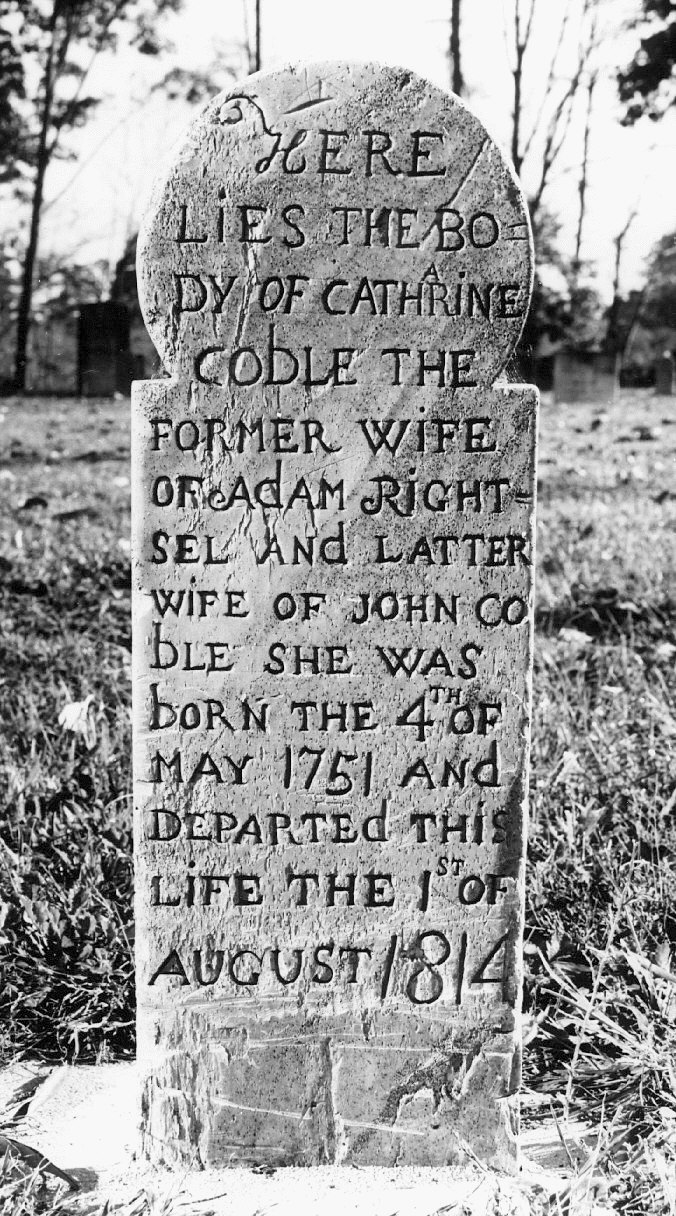 HERE
LIES THE BO=
DY OF CATHARINE
CObLE THE
FORMER WIFE
OF AdAM RIGHT=
SEL ANd LATTER
WIFE OF JOHN CO
bLE SHE WAS
bORN THE 4TH OF
MAY 1751 ANd
DEPARTEd THIS
LIFE THE 1ST OF
AUGUST 1814